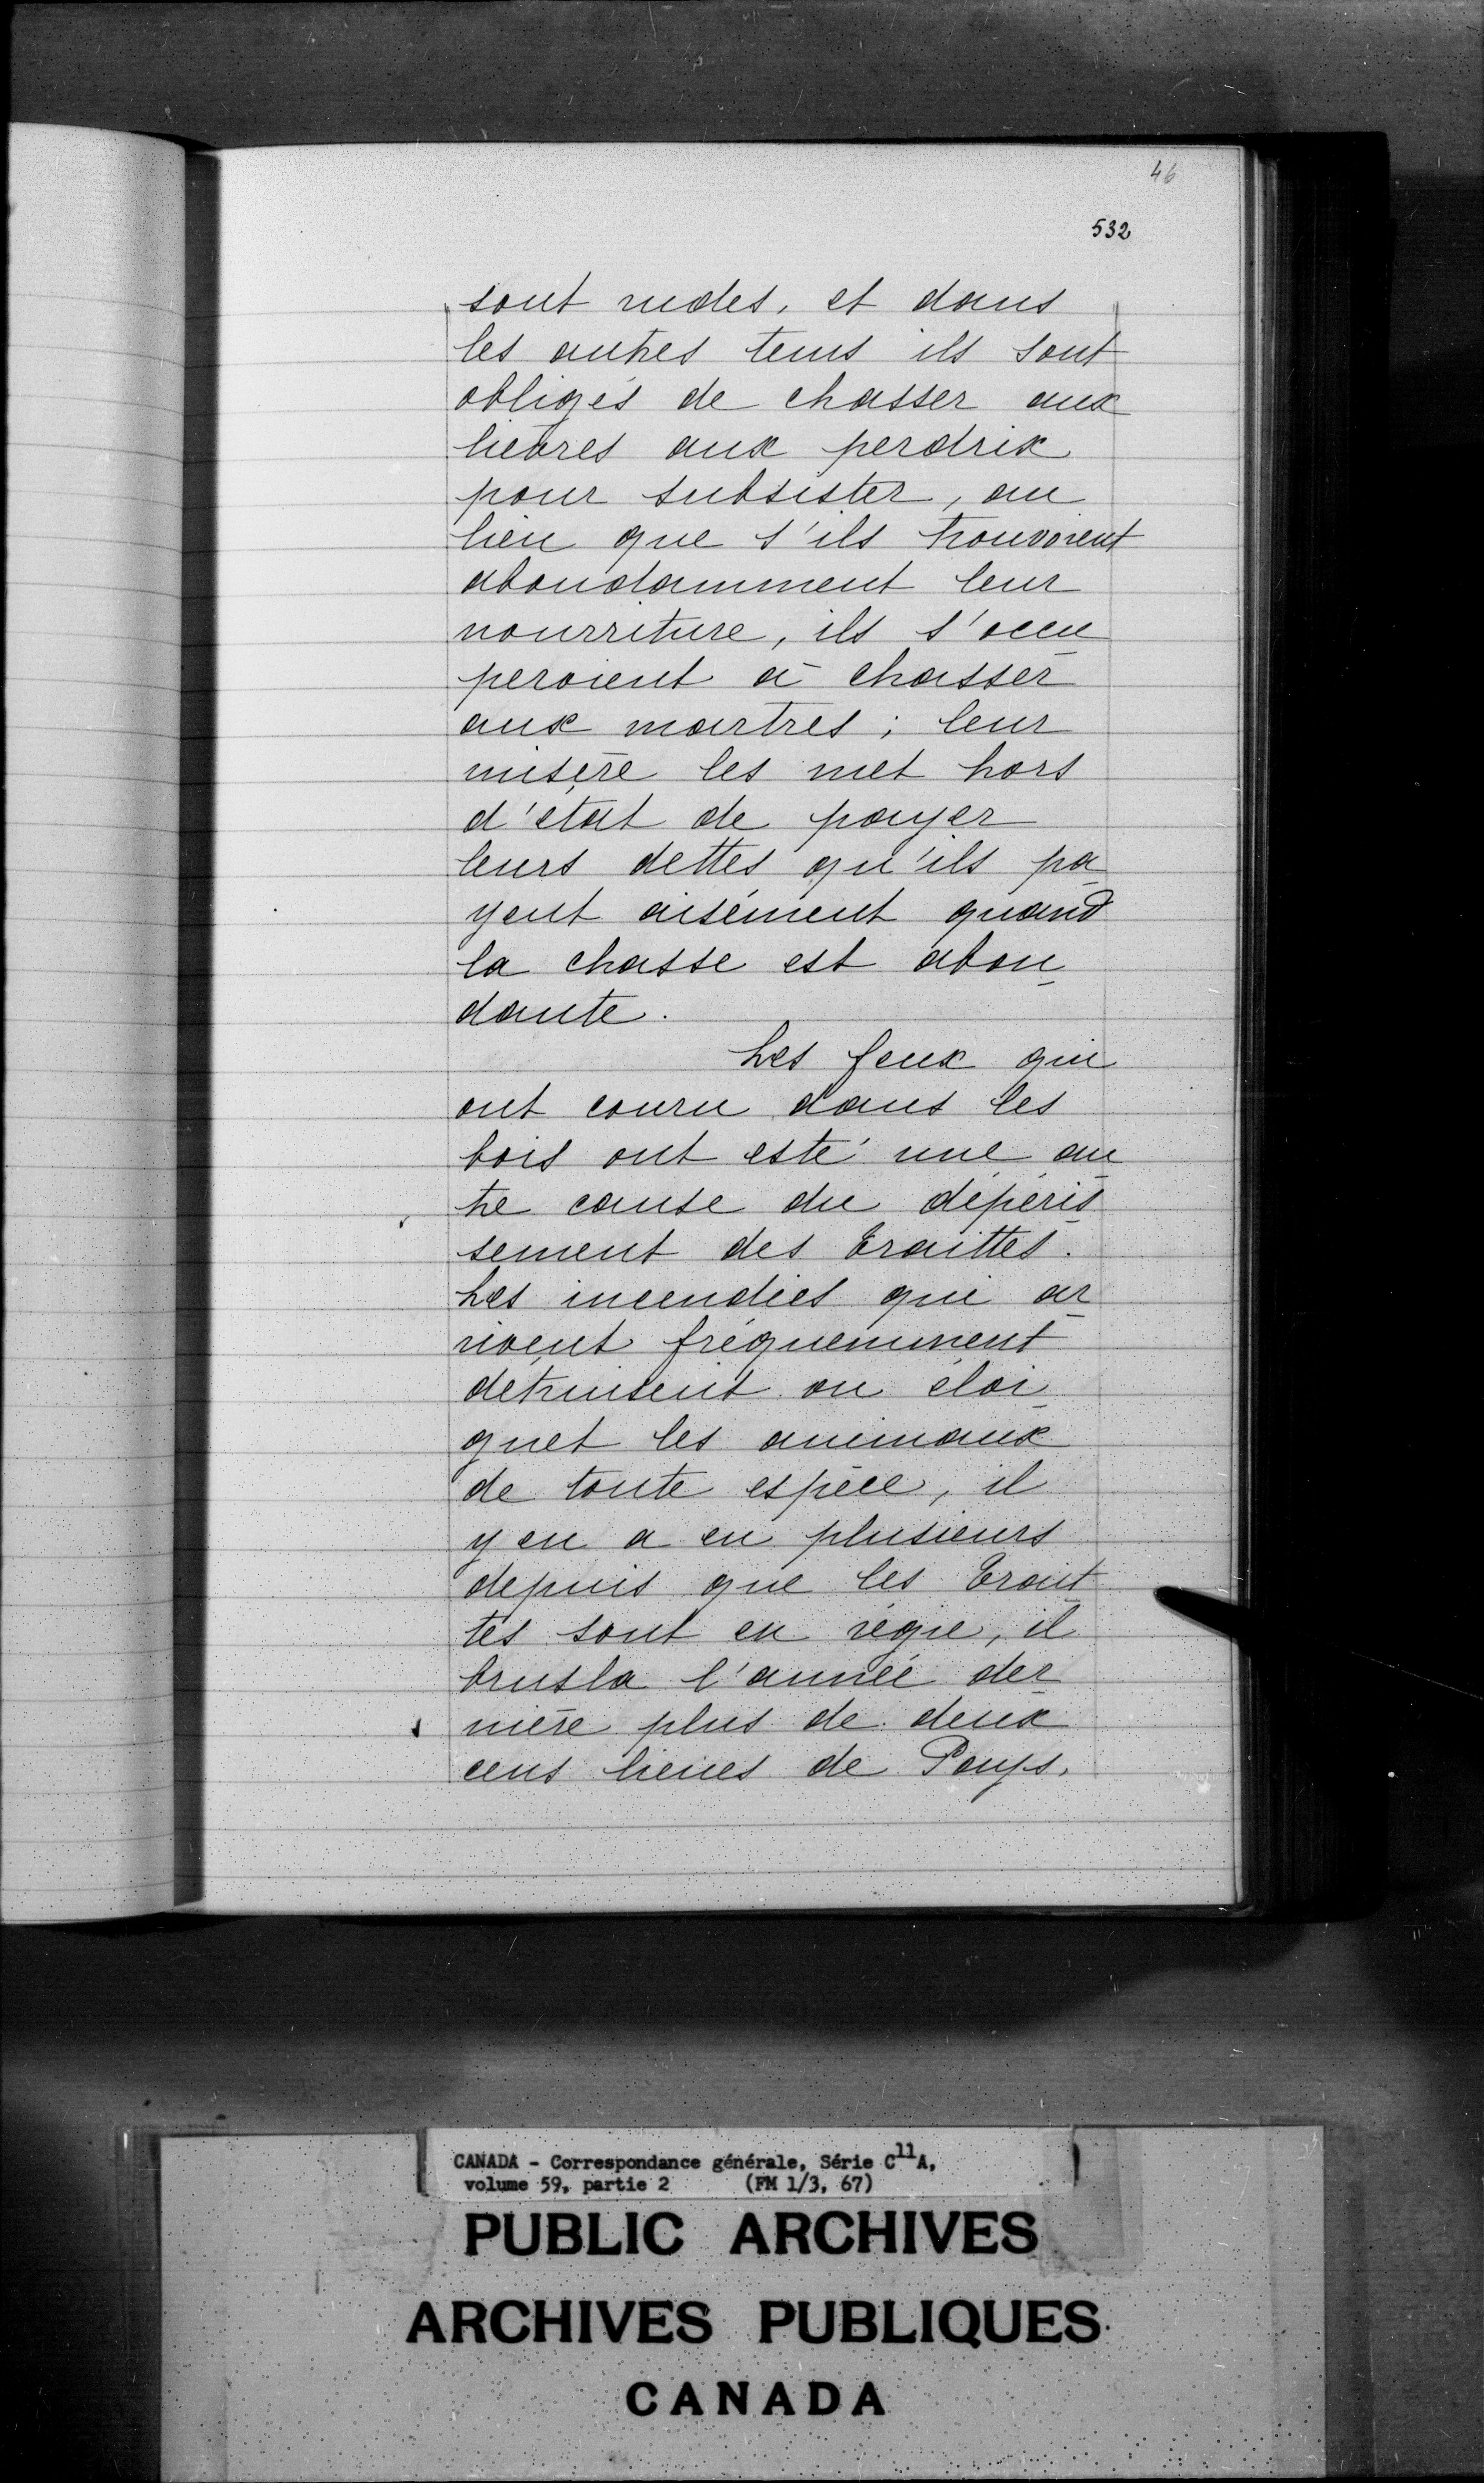 46
532
sont rudes, et dans
les autres tems ils sont
obligés de chasser aux
lièvres aux perdrix
pour subsister, au
lieu que s'ils trouvoient
abondamment leur
nourriture, ils s'occu
peroient à chasser
aux martres; leur
misère les met hors
d'état de payer
leurs dettes qu'ils pa
yent aisément quand
la chasse est abon
dante.
Les feux qui
ont couru dans les
bois ont esté une au
tre cause du dépéris
sement des Traittes.
Les incendies qui ar
rivent fréquemment
detruisent ou éloi
gnet les animaux
de toute espèce, il
y en a eu plusieurs
depuis que les Trait
tes sont en régie, il
brusla l'année der
nière plus de deux
cens lieues de Pays.
CANADA - Correspondance générale, Série C11A,
volume 59, partie 2 (FM 1/3, 67)
PUBLIC ARCHIVES
ARCHIVES PUBLIQUES
CANADA